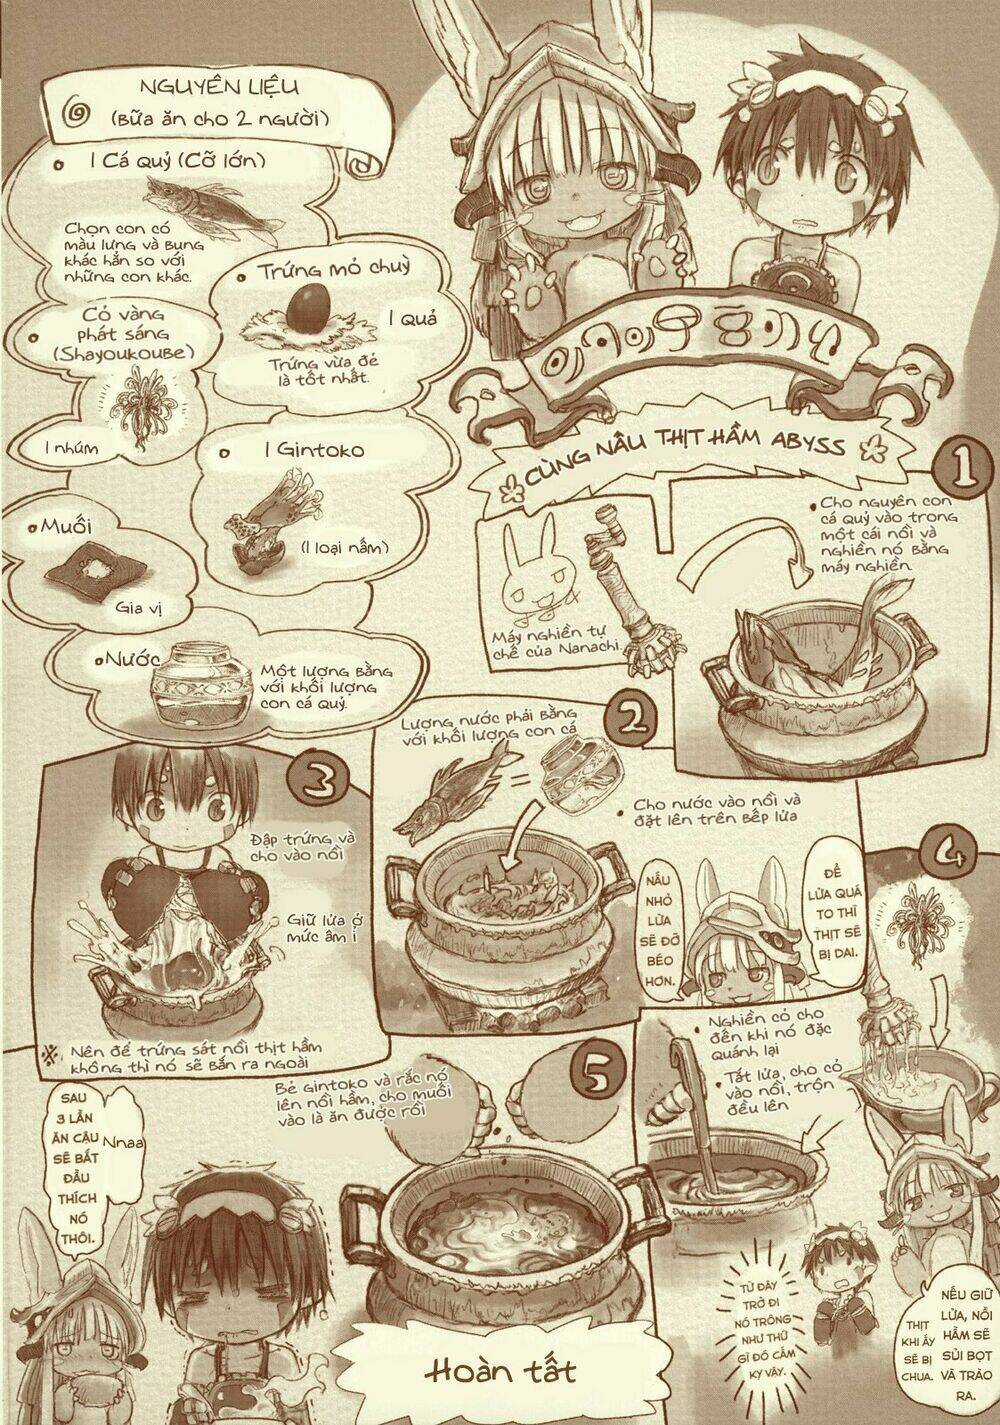 NGUYÊN LIỆU
(BỮA ĂN CHO 2 NGƯỜI)
• 1 CÁ QUỶ (CỠ LỚN)
Chọn con có
màu lưng và bụng
khác hẳn so với
những con khác.
• Trứng mỏ chuỳ
1 Quả
Trứng vừa đẻ
là tốt nhất.
• Cỏ vàng
phát sáng
(Shayoukoube)
1 nhúm
• 1 Gintoko
(1 loại nấm)
• Muối
Gia vị
• Nước
Một lượng bằng
với khối lượng
con cá quỷ.
CÙNG NẤU THỊT HẦM ABYSS
1
• Cho nguyên con
cá quỷ vào trong
một cái nồi và
nghiền nó bằng
máy nghiền.
Máy nghiền tự
chế của Nanachi.
2
Lượng nước phải bằng
với khối lượng con cá
=
• Cho nước vào nồi và
đặt lên trên bếp lửa
ĐỂ
LỬA QUÁ
TO THÌ
THỊT SẼ
BỊ DAI.
NẤU
NHỎ
LỬA
SẼ ĐỠ
BÉO
HƠN.
3
Đập trứng và
cho vào nồi
Giữ lửa ở
mức âm ỉ
※ Nên để trứng sát nồi thịt hầm
không thì nó sẽ bắn ra ngoài
4
• Nghiền cỏ cho
đến khi nó đặc
quánh lại
• Tắt lửa, cho cỏ
vào nồi, trộn
đều lên
NẾU GIỮ
LỬA, NỒI
HẦM SẼ
SỦI BỌT
VÀ TRÀO
RA.
THỊT
KHI ẤY
SẼ BỊ
CHUA.
TỪ ĐÂY
TRỞ ĐI
NÓ TRÔNG
NHƯ THỨ
GÌ ĐÓ CẤM
KỴ VẬY.
5
Bẻ Gintoko và rắc nó
lên nồi hầm, cho muối
vào là ăn được rồi
Nnaa
SAU
3 LẦN
ĂN CẬU
SẼ BẮT
ĐẦU
THÍCH
NÓ
THÔI.
Hoàn tất